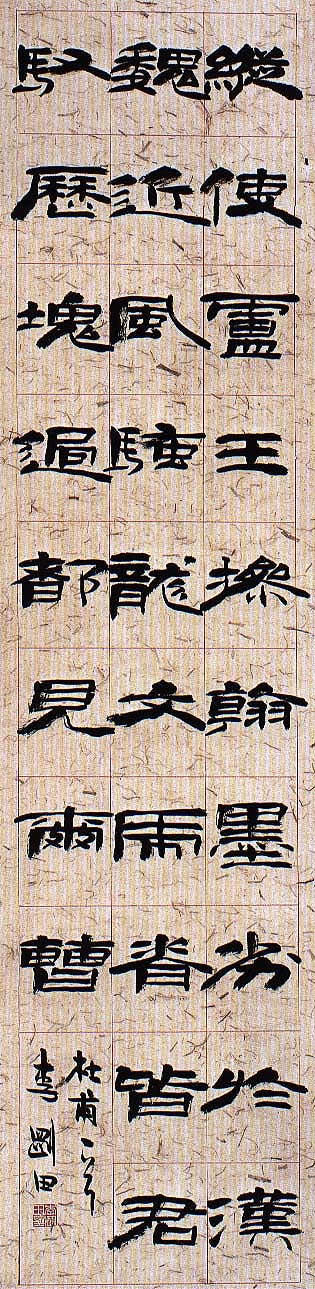 縱使盧王操翰墨劣於漢
魏近風騷龍文虎脊皆君
馭歷塊過都見爾曹
杜甫
李剛田